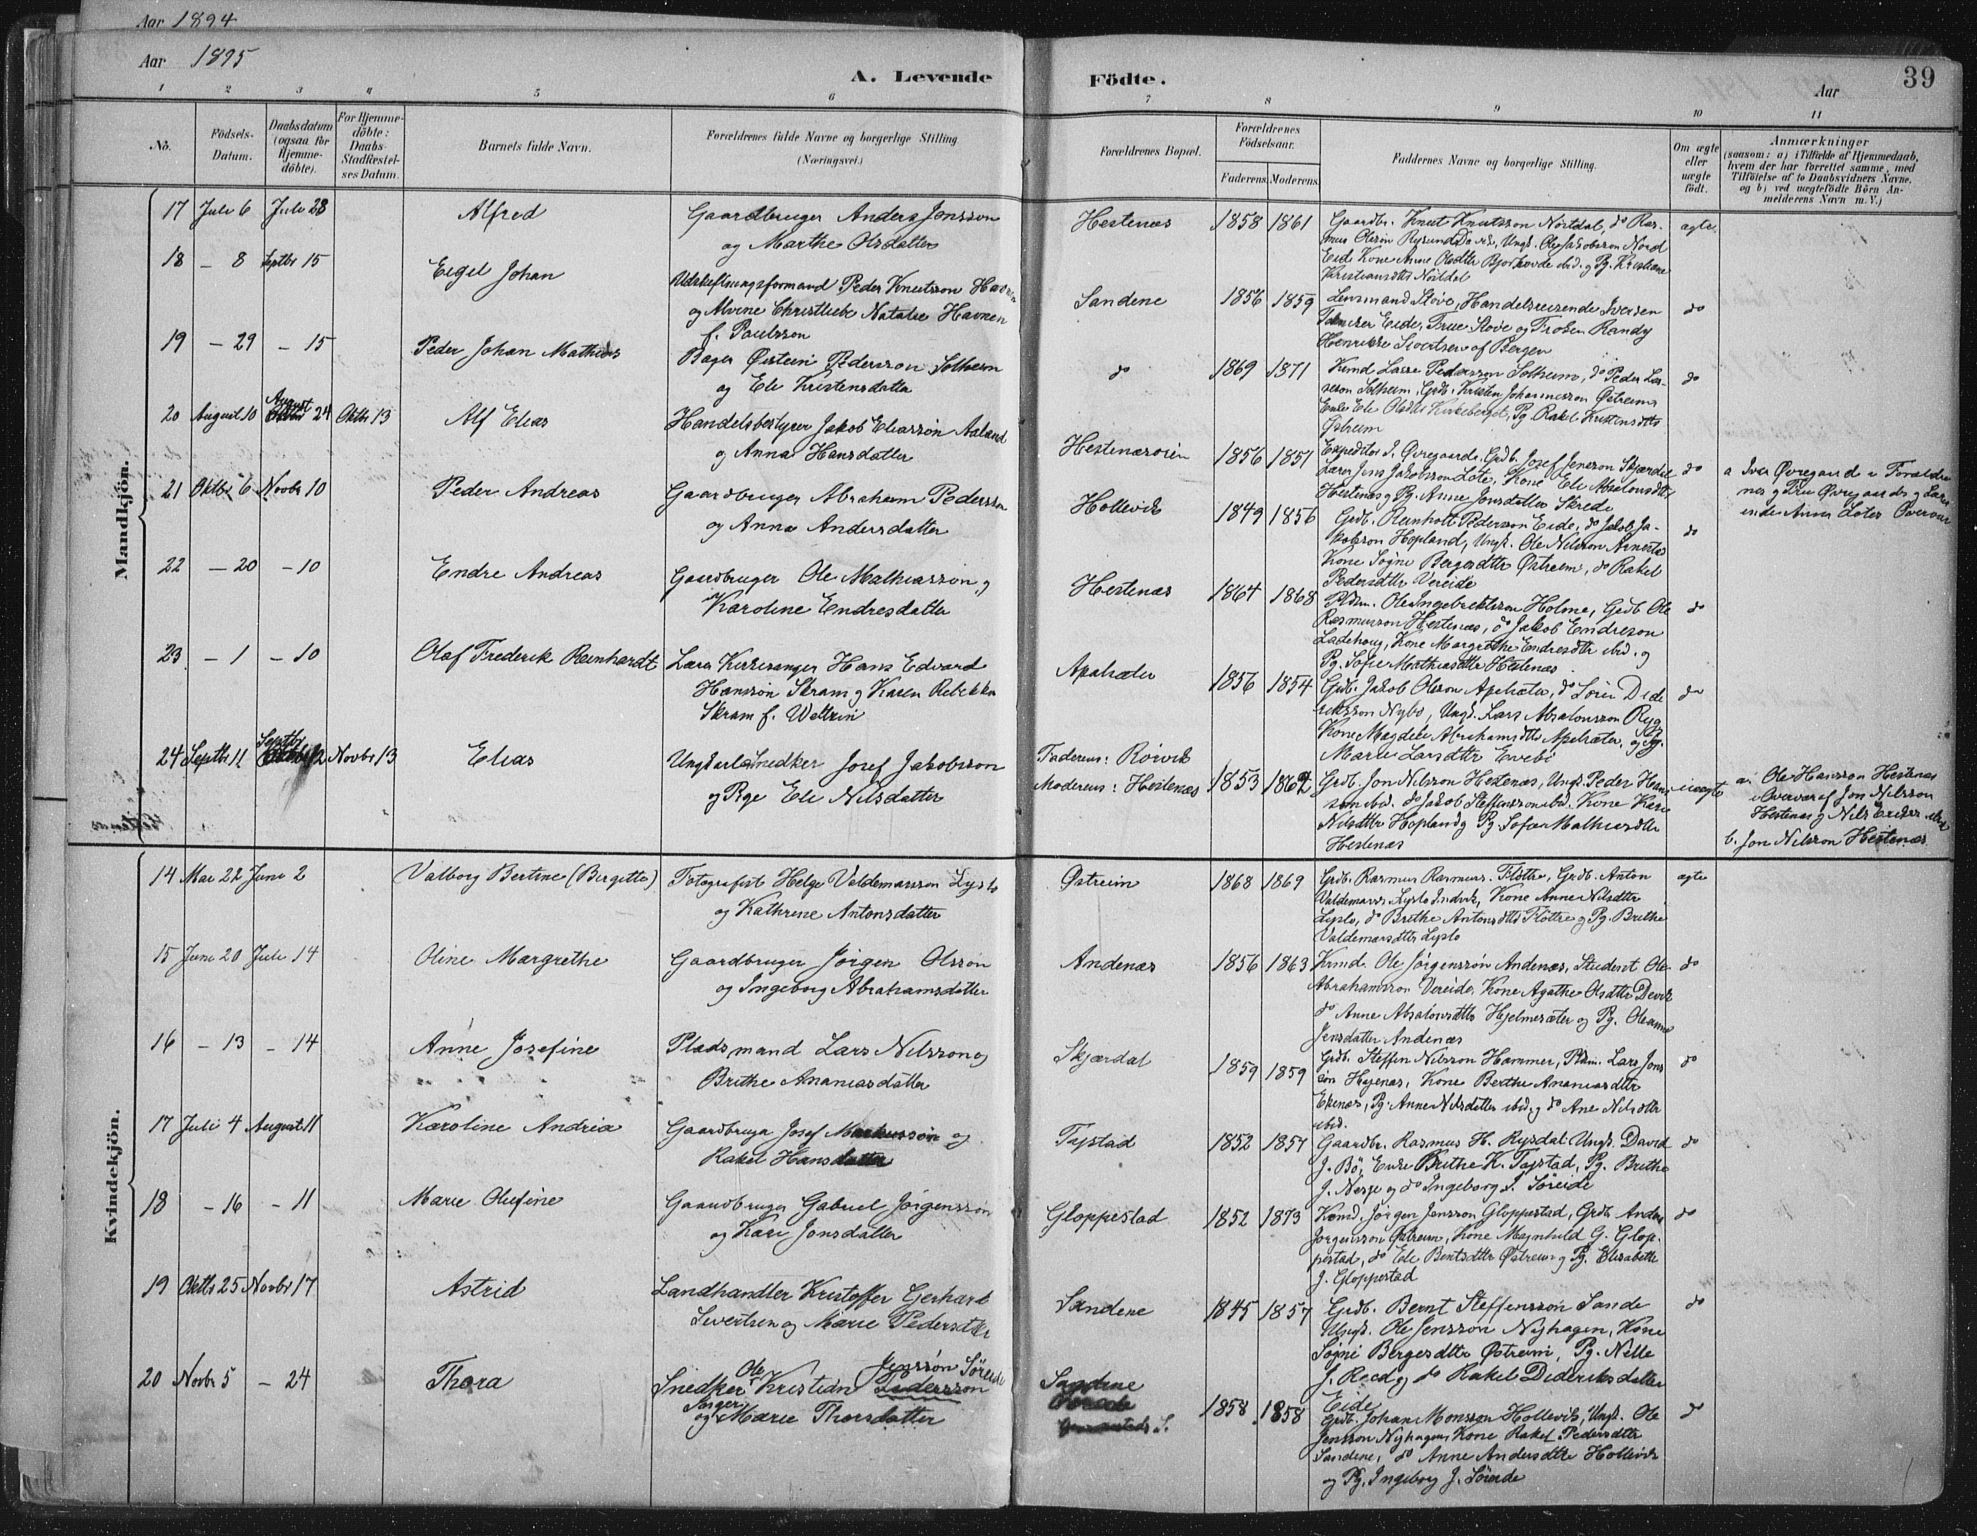 Aar 1894
Aar 1895
A. Levende
Födte.
Aar
39
1 2 3 4 5 6 7 8 9 10 11
No.
Födsels-Datum.
Daabsdatum (ogsaa for Hjemmedöbte).
For Hjemmedöbte: Daabs-Stadfæstelses Datum.
Barnets fulde Navn.
Forældrenes fulde Navne og borgerlige Stilling (Næringsvei.)
Forældrenes Bopæl.
Forældrenes Födselsaar.
Faderens. Moderens.
Faddernes Navne og borgerlige Stilling.
Om ægte eller uægte födt.
Anmærkninger
(saasom: a) i Tilfælde af Hjemmedaab,
hvem der har forrettet samme, med
Tilföielse af to Daabsvidners Navne,
og b) ved uægtefödte Börn An-
melderens Navn m. V.)
Mandkjön.
17 Juli 6 Juli 28 Alfred
Gaardbruger Anders Jonsson
og Marthe Olsdatter
Hestenæs 1858 1861
Gaardbr. Knut Knutsson Nordal, do Ras-
mus Olsson Rygsund, Ungk. Ole Jakobsson Nord
Eide Kone Anne Olsdtr ibid. og Pg. Kristiane
Kristiansdtr Nordal
ægte
18 - 8 Septbr 15 Eigel Johan
Udskiftningsformand Peder Knutsson Havnen
og Alvine Christliebe Natalie Havnen
f. Paulsson
Sandene 1856 1859
Lensmand Støve, Handelsreisende Iversen
Eide, Frue Støve og Frøken Randy
Henrikke Sivertsen af Bergen
do
19 - 29 - 15 Peder Johan Mathias
Bager Østein Pedersson Solheim
og Eli Kristensdatter
do 1869 1871
Kmd Lasse Pedersson Solheim, do Peder Las-
seson Solheim, Grdb. Kristen Johannesson Østreim
Enke Eli Olsdtr Kirkeberget, Pg. Rakel Kristensdtr
Østreim
do
20 August 10 August 24 Oktbr 13 Alf Elias
Handelsbestyrer Jakob Eliasson Aaland
og Anna Hansdatter
Hestenæsøien 1856 1851
Expeditør I. Øvregaard, Grdb. Josef Jensson Skjærdal
Lærer Jens Jakobsson Lote, Kone Eli Absalonsdtr
Hestenæs og Pg. Anne Jonsdatter Skrede
do
a Iver Øvregaard i Forældre
nes og Fru Øvregaards og Lærer
inde Anna Lotes Overvær
21 Oktbr 6 Novbr 10 Peder Andreas
Gaardbruger Abraham Pedersson
og Anna Andersdatter
Hollevik 1849 1856
Grdb. Reinholt Pedersson Eide, do Jakob Ja-
kobson Hopland, Ungk. Ole Nilsson Arnestad
Kone Søgni Bergersdtr Østreim, do Rakel
Pedersdtr Vereide
do
22 - 20 - 10 Endre Andreas
Gaardbruger Ole Mathiasson og
Karoline Endresdatter
Hestenæs 1864 1868
Pldm. Ole Ingebrektsson Holme, Grdb Ole
Rasmusson Hestenæs, do Jakob Endreson
Ladehaug, Kone Margrethe Endresdtr ibid. og
Pg. Sofie Mathiasdtr Hestenæs
do
23 - 1 - 10 Olaf Frederik Reinhardt
Lærer Kirkesanger Hans Edvard
Hansson Skram og Karen Rebekka
Skram f. Weltzin
Apalsæter 1856 1854
Grdb. Jakob Olsson Apelsæter, do Søren Dide
riksson Nybø, Ungk. Lars Absalonsson Ryg
Kone Magdele Abrahamsdtr Apelsæter, og Pg.
Marie Larsdtr Evebø
do
24 Septbr 11 Septbr 12 Novbr 13 Elias
Ungkarl Snedker Josef Jakobsson
og Pge Eli Nilsdatter
Faderens: Røivik
Moderens: Hestenæs 1853 1862
Grdb. Jon Nilsson Hestenæs, Ungk. Peder Hans
son ibid. do Jakob Steffensson ibid, Kone Kari
Nilsdtr Hopland og Pg Sofie Mathiasdtr
Hestenæs
uægte
a. Ole Hansson Hestenæs
i Overvær af Jon Nilsson
Hestenæs og Nils Eriksen ibid
b. Jon Nilsson Hestenæs
Kvindekjön.
14 Mai 22 Juni 2 Valborg Bertine (Birgitte)
Fotografist Helge Valdemarsson Lyslo
og Kathrine Antonsdatter
Østreim 1868 1869
Grdb. Rasmus Rasmuss. Flöttre, Grdb. Anton
Valdemarss Lyslo Indvik, Kone Anne Nilsdtr
Lyslo, do Brithe Antonsdtr Flöttre og Pg. Brithe
Valdemarsdtr Lyslo
ægte
15 Juni 20 Juli 14 Oline Margrethe
Gaardbruger Jörgen Olsson
og Ingeborg Abrahamsdatter
Andenæs 1856 1863
Kmd. Ole Jörgensson Andenæs, Student Ole
Abrahamsson Vereide, Kone Agathe Olsdtr Devik
do Anne Absalonsdtr Hjelmesæter og Pg. Oleanna
Jensdatter Andenæs
do
16 - 13 - 14 Anne Josefine
Pladsmand Lars Nilsson og
Brithe Ananiasdatter
Skjærdal 1859 1859
Grdb. Steffen Nilsson Hammer, Pldm. Lars Jons
son Højenæs, Kone Berthe Ananiasdtr
Ekenæs, Pg. Anne Nilsdatter ibid, og do Ane Nilsdtr
ibid.
do
17 Juli 4 August 11 Karoline Andrea
Gaardbruger Josef Markusson og
Rakel Hansdatter
Tystad 1852 1857
Gaardbr. Rasmus H. Rysdal. Ungk. David
J. Bö, Enke Brithe K. Tystad, Pg. Brithe
J. Nesje og do Ingeborg J. Söreide
do
18 - 16 - 11 Marie Olufine
Gaardbruger Gabriel Jörgensson
og Kari Jonsdatter
Gloppestad 1852 1873
Kmd. Jörgen Jensson Gloppestad, Grdb Anders
Jorgensson Østreim, Kone Magnhild G. Glop-
pestad, do Eli Bentsdtr Østreim og Pg. Elisabeth
J. Gloppestad
do
19 Oktbr 25 Novbr 17 Astrid
Landhandler Kristoffer Gerhard
Sivertsen og Marie Pedersdtr
Sandene 1845 1857
Grdb. Bernt Steffensson Sande
Ungk. Ole Jensson Nyhagen, Kone
Søgni Bergersdtr Østreim, Pg. Nelle
J. Reed og do Rakel Dideriksdatter
Eide
do
20 Novbr 5 - 24 Thora
Snedker Ole Kristian Pedersson Jensson Söreide
og Marie Thorsdatter
Sandene 1858 1858
Grdb. Johan Monsson Hollevik, Ungk. Ole
Jensson Nyhagen, Kone Rakel Pedersdtr
Sandene, do Anne Andersdtr Hollevik
og Pg. Ingeborg J. Söreide
do